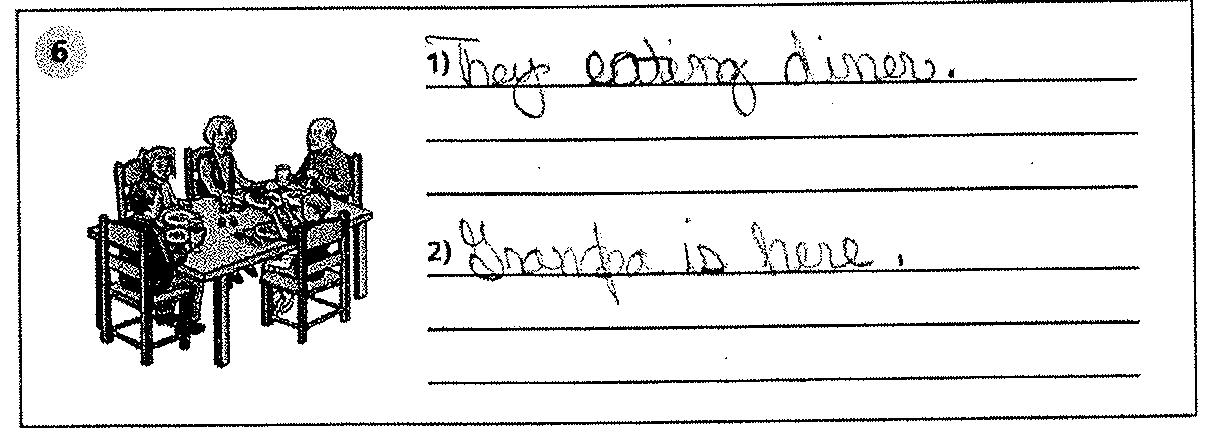 6
1) They eating diner.
2) Granpa is here.